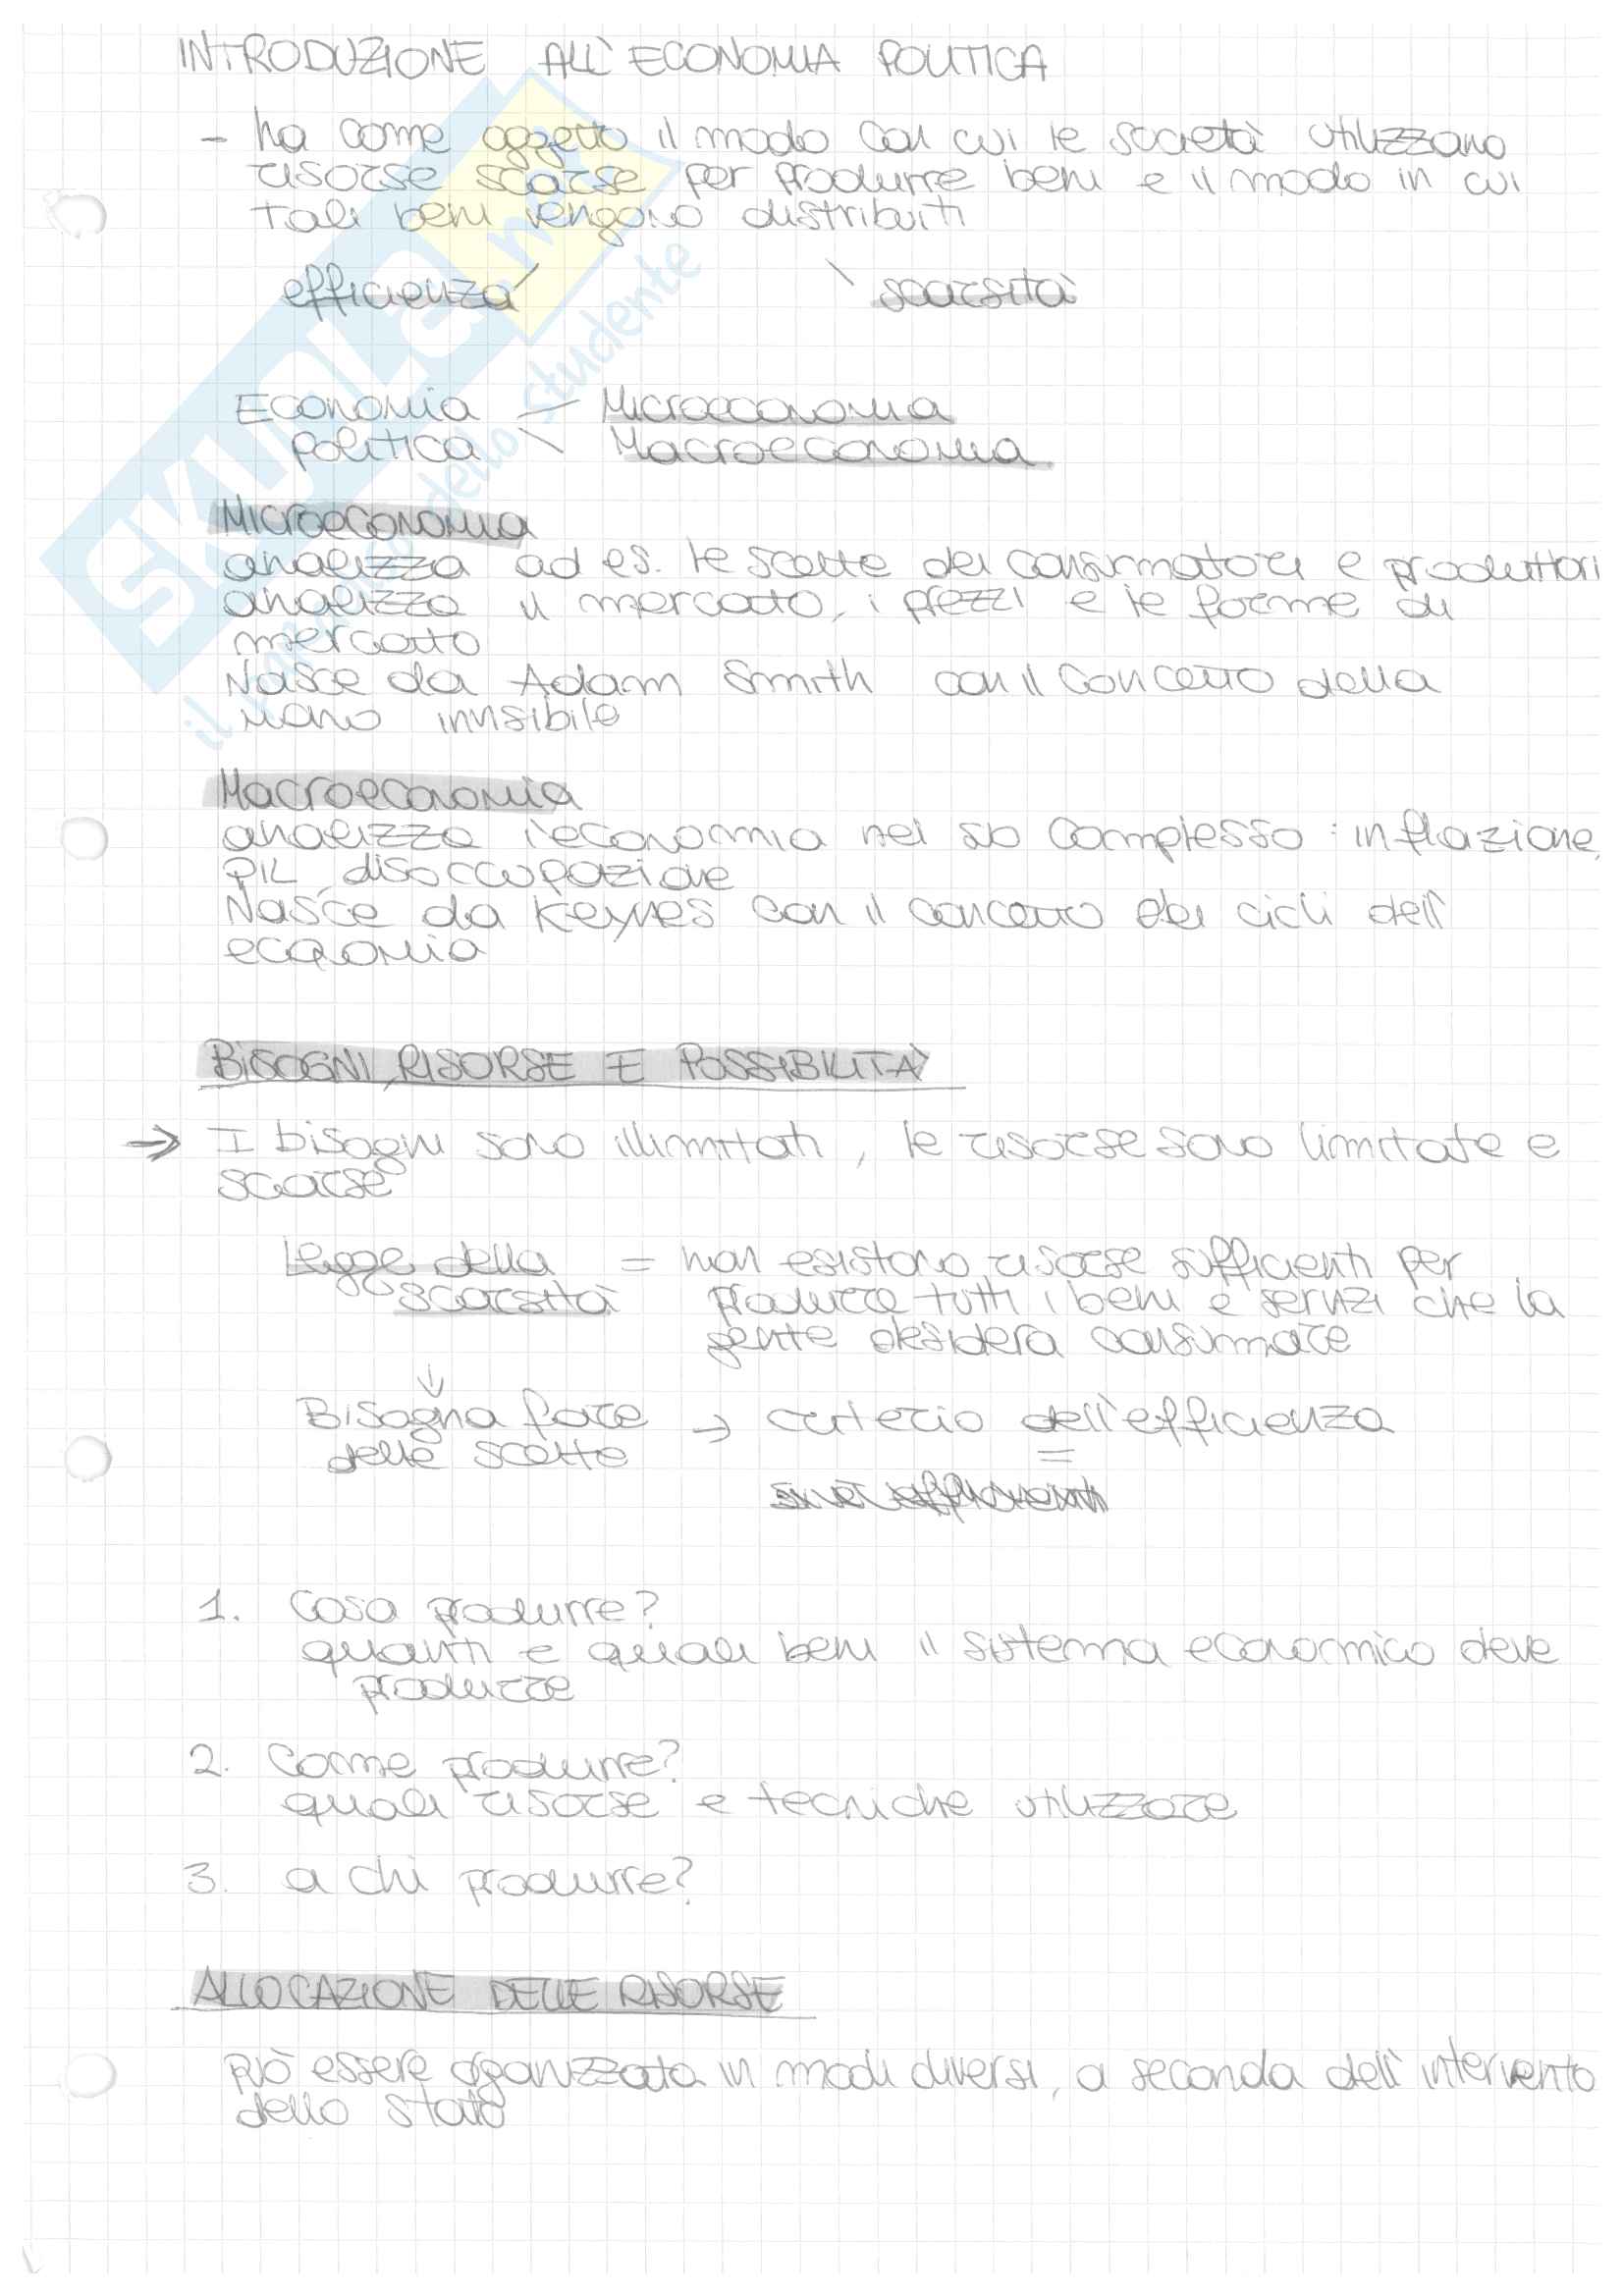 INTRODUZIONE ALL'ECONOMIA POLITICA
- ha come oggetto il modo con cui le società utilizzano
risorse scarse per produrre beni e il modo in cui
tali beni vengono distribuiti
efficienza scarsità
Economia — Microeconomia
politica \ Macroeconomia
Microeconomia
analizza ad es. le scelte dei consumatori e produttori
analizza il mercato, i prezzi e le forme di
mercato
Nasce da Adam Smith con il concetto della
mano invisibile
Macroeconomia
analizza l'economia nel suo complesso: inflazione,
PIL, disoccupazione
Nasce da Keynes con il concetto dei cicli dell'
economia
BISOGNI, RISORSE E POSSIBILITÀ
→ I bisogni sono illimitati, le risorse sono limitate e
scarse
Legge della = non esistono risorse sufficienti per
scarsità produrre tutti i beni e servizi che la
gente desidera consumare
↓
Bisogna fare → criterio dell'efficienza
delle scelte =
1. Cosa produrre?
quanti e quali beni il sistema economico deve
produrre
2. Come produrre?
quali risorse e tecniche utilizzare
3. a chi produrre?
ALLOCAZIONE DELLE RISORSE
può essere organizzata in modi diversi, a seconda dell'intervento
dello stato
SKUOLa.net
dello studente